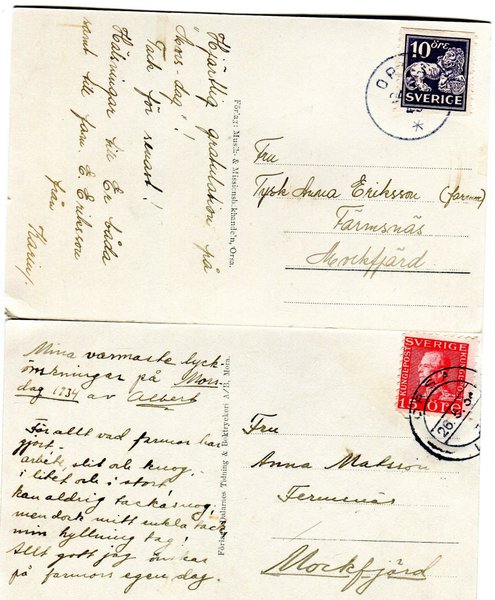 Hjärtlig gratulation på
Mors-dag!!
Tack för senast!!
Hälsningar till Er båda
samt till fam. E. Eriksson
från
Karin
Förlag: Musik- & Missionsb.khandeln, Orsa.
10 ÖRE
SVERIGE
OR
Fru
Tysk Anna Eriksson (farmor)
Färmsnäs
Mockfjärd
Mina varmaste lyck-
önskningar på Mors-
dag 1934 av Albert
För allt vad farmor har
gjort
arbet, slit och knog
i litet och i stort
kan aldrig tackas nog
men dock mitt enkla tack
min hyllning tag!
Allt gott jag önskar
på farmors egen dag.
Tidning & Boktryckeri A/B, Mora.
SVERIGE
15 ÖRE
26
Fru
Anna Matsson
Fermsnäs
Mockfjärd